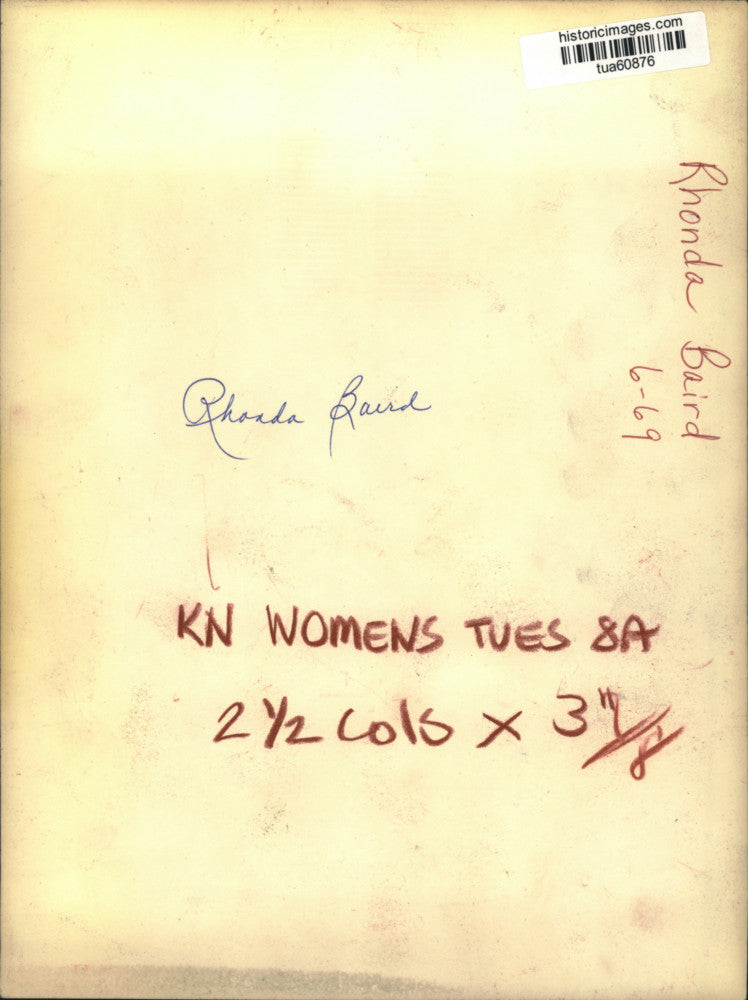 historicimages.com
tua60876
Rhonda Baird
6-69
Rhonda Baird
KN WOMENS TUES 8A
2 1/2 Cols x 3"